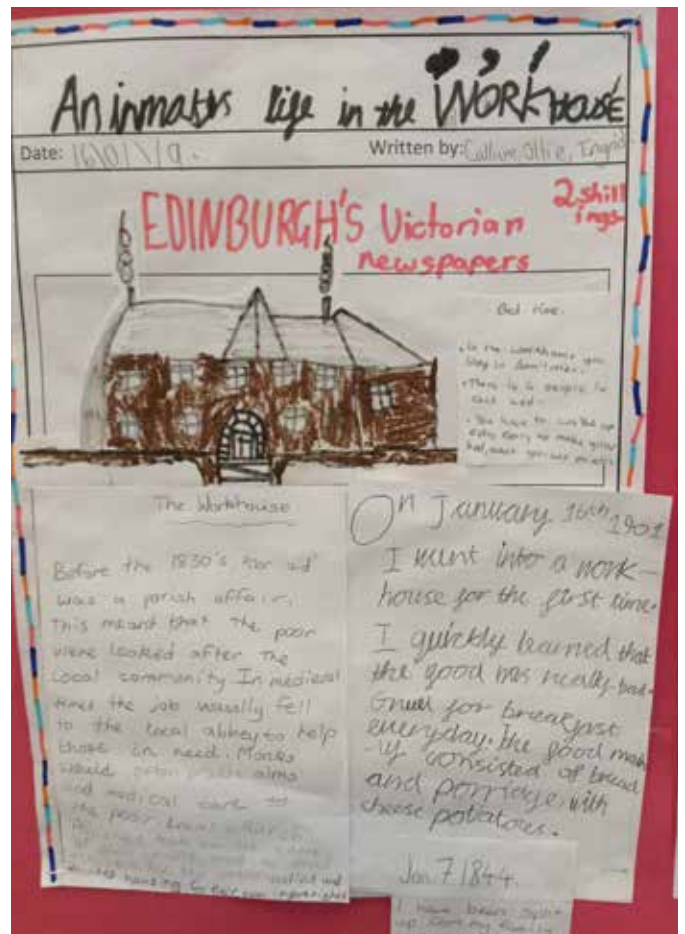 An inmates life in the WORKHOUSE
Date: 16/01/19.
Written by: Callum, Ollie, Ingrid
EDINBURGH'S Victorian
newspapers
2 shill
ings
Bed time.
In the workhouse you
stay in dormitories.
There is people in
each bed
You have to wake up
early to make your
bed, wash your
The Workhouse
Before the 1830's poor aid
was a parish affair.
This meant that the poor
were looked after the
local community In medieval
times the job usually fell
to the local abbey to help
those in need. Monks
would often alms
and medical care to
the poor local church
On January 16th 1901
I went into a work-
house for the first time.
I quickly learned that
the food was really bad.
Gruel for breakfast
everyday. the food main
-ly consisted of bread
and porridge with
cheese potatoes.
Jan 7 1844.
I have been split
up from my family